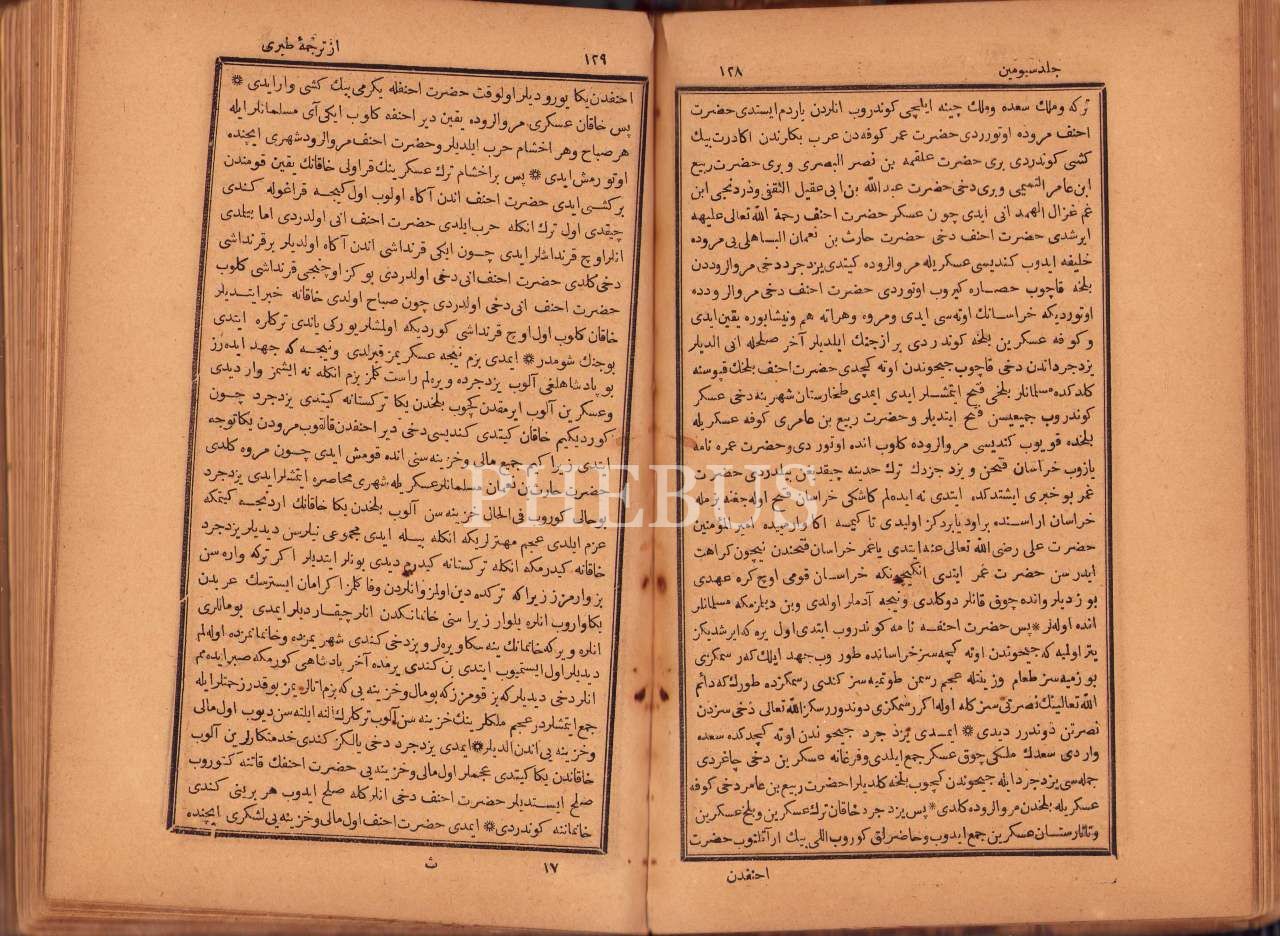 جلد سیومین
١٢٨
ترکه وملك سعده وملك چینه ایلچی کوندروب انلردن یاردم ایستدی حضرت
احنف مروده اوتوردی حضرت عمر کوفه‌دن عرب بکلرندن اکا درت بیك
کشی کوندردی بری حضرت علقمه بن نصر البصری و بری حضرت ربیع
ابن عامر التمیمی و بری دخی حضرت عبد الله بن ابی عقیل الثقفی ودردنجی ابن
غزال الهمدانی ایدی چون عسکر حضرت احنف رحمة الله تعالی علیهه
ایرشدی حضرت احنف دخی حضرت حارث بن نعمان الباهلی یی مروده
خلیفه ایدوب کندیسی عسکریله مروالروده کیتدی یزدجرد دخی مروالروددن
بلخه قاچوب حصاره کیروب اوتوردی حضرت احنف دخی مروالرودده
اوتوردیکه خراسانك اوته‌سی ایدی ومروه وهراته هم ونیشابوره یقین ایدی
وکوفه عسکرین بلخه کوندردی بر از جنك ایلدیلر آخر صلحله انی الدیلر
یزدجرد اندن دخی قاچوب جیحوندن اوته کچدی حضرت احنف بلخك قپوسنه
کلدکده مسلمانلر بلخی فتح ایتمشلر ایدی ایمدی طخارستان شهرینه دخی عسکر
کوندروب جمیعیسن فتح ایتدیلر وحضرت ربیع بن عامری کوفه عسکریله
بلخده قویوب کندیسی مروالروده کلوب انده اوتوردی وحضرت عمره نامه
یازوب خراسان فتحن و یزدجردك ترك حدینه چیقدیغن بیلدردی حضرت
عمر بو خبری ایشتدکده ایتدی نه ایدەلم کاشکی خراسان فتح اولمەیدی بزمله
خراسان اراسنده
حضرت علی رضی الله تعالی عنه ایتدی یا عمر خراسان فتحندن نیچون کراهت
ایدرسن حضرت عمر ایتدی انکیچونکه خراسان قومی اوچ کره عهدی
بوزدیلر وانده چوق قانلر دوکلدی ونیجه آدملر اولدی وبن دیلرمکه مسلمانلر
انده اولەلر * پس حضرت احنفه نامه کوندروب ایتدی اول یره که ایرشدیکز
یتر اولمیه که جیحوندن اوته کچه‌سز خراسانده طوروب جهد ایلك که رسمکزی
بوزمیه‌سز طعام وزینتله عجم رسمن طوتمیه‌سز کندی رسمکزده طورك که دائم
الله تعالینك نصرتی سزکله اوله اکر رسمکزی دوندورسکز الله تعالی دخی سزدن
نصرتن دوندردیدی * ایمدی یزدجرد جیحوندن اوته کچدکده سعده
واردی سعدك ملکی چوق عسکر جمع ایلدی وفرغانه عسکرین دخی چاغردی
جمله‌سی یزدجرد ایله جیحوندن کچوب بلخه کلدیلر حضرت ربیع بن عامر دخی کوفه
عسکریله بلخدن مروالروده کلدی * پس یزدجرد خاقان ترك عسکرین وبلخ عسکرین
وتاتارستان عسکرین جمع ایدوب وحاضرلق کوروب اللی بیك ار آتلنوب حضرت
احنفدن
١٢٩
از ترجمهٔ طبری
احنفدن یکا یورودیلر اولوقت حضرت احنفله یکرمی بیك کشی وار ایدی *
پس خاقان عسکری مروالروده یقین دیر احنفه کلوب ایکی آی مسلمانلر ایله
هر صباح وهر اخشام حرب ایلدیلر وحضرت احنف مروالرود شهری ایچنده
اوتورمش ایدی * پس بر اخشام ترك عسکرینك قراولی خاقانك یقین قومندن
بر کشی ایدی حضرت احنف اندن آکاه اولوب اول کیجه قراغوله کندی
چیقدی اول ترك انکله حرب ایلدی حضرت احنف انی اولدردی اما بتلدی
انلر اوچ قرنداشلر ایدی چون ایکی قرنداشی اندن آکاه اولدیلر بر قرنداشی
دخی کلدی حضرت احنف انی دخی اولدردی بو کز اوچنجی قرنداشی کلوب
حضرت احنف انی دخی اولدردی چون صباح اولدی خاقانه خبر ایتدیلر
خاقان کلوب اول اوچ قرنداشی کوردیکه اولمشلر یورکی یاندی ترکلره ایتدی
بو جنك شومدر * ایمدی بزم نیجه عسکریمز قیرلدی ونیجه که جهد ایده‌رز
بو پادشاهلغی آلوب یزدجرده ویره‌لم راست کلمز بزم انکله نه ایشمز وار دیدی
وعسکرین آلوب ایرمقدن کچوب بلخدن یکا ترکستانه کیتدی یزدجرد چون
کوردیکیم خاقان کیتدی کندیسی دخی دیر احنفدن قالقوب مرودن یکا توجه
ایتدی زیرا کیم جمیع مالی وخزینه‌سنی انده قومش ایدی چون مروه کلدی
حضرت حارث بن نعمان مسلمانلر عسکریله شهری محاصره ایتمشلر ایدی یزدجرد
بو حالی کوروب فی الحال خزینه‌سن آلوب بلخدن یکا خاقانك اردنجه کیتمکه
عزم ایلدی عجم مهترلری که انکله بیله ایدی مجموعی نیلرسن دیدیلر یزدجرد
خاقانه کیدرم که انکله ترکستانه کیدرم دیدی بونلر ایتدیلر اکر ترکه واره‌سن
بز وارمزز زیرا که ترکده دین اولمز وانلردن وفا کلمز اکر امان ایسترسك عربدن
یکا واروب انلره یلوار زیرا سنی خانمانکدن انلر چیقاردیلر ایمدی بو مالاری
انلره ویر که خانمانك ینه سکا ویره‌لر وبز دخی کندی شهریمزده وخانمانمزده اوله‌لم
دیدیلر اول ایستمیوب ایتدی بن کندی یرمده آخر پادشاهی کورمکه صبر ایده‌مم
انلر دخی دیدیلر که بز قومزز که بو مال وخزینه‌یی که بزم اتالریمز بو قدر زحمتلر ایله
جمع ایتمشلردر عجم ملکلرینك خزینه‌سن آلوب ترکلرك الینه ایلته‌سن دیوب اول مالی
وخزینه‌یی اندن الدیلر * ایمدی یزدجرد دخی یالکز کندی خدمتکارلرین آلوب
خاقاندن یکا کیتدی عجملر اول مالی وخزینه‌یی حضرت احنفك قاتنه کتوروب
صلح ایستدیلر حضرت احنف دخی انلرکله صلح ایدوب هر برینی کندی
خانماننه کوندردی * ایمدی حضرت احنف اول مالی وخزینه‌یی لشکری ایچنده
١٧
ث
PHEBUS